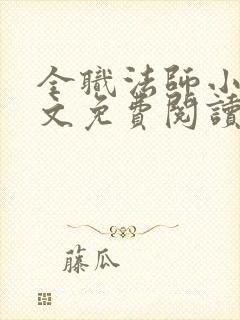 全職法師小
文免費閱讀
藤瓜